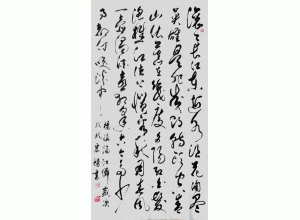 滚滚长江东逝水浪花淘尽
英雄是非成败转头空青
山依旧在几度夕阳红白发
渔樵江渚上惯看秋月春风
一壶浊酒喜相逢古今多少
事都付笑谈中
杨慎临江仙